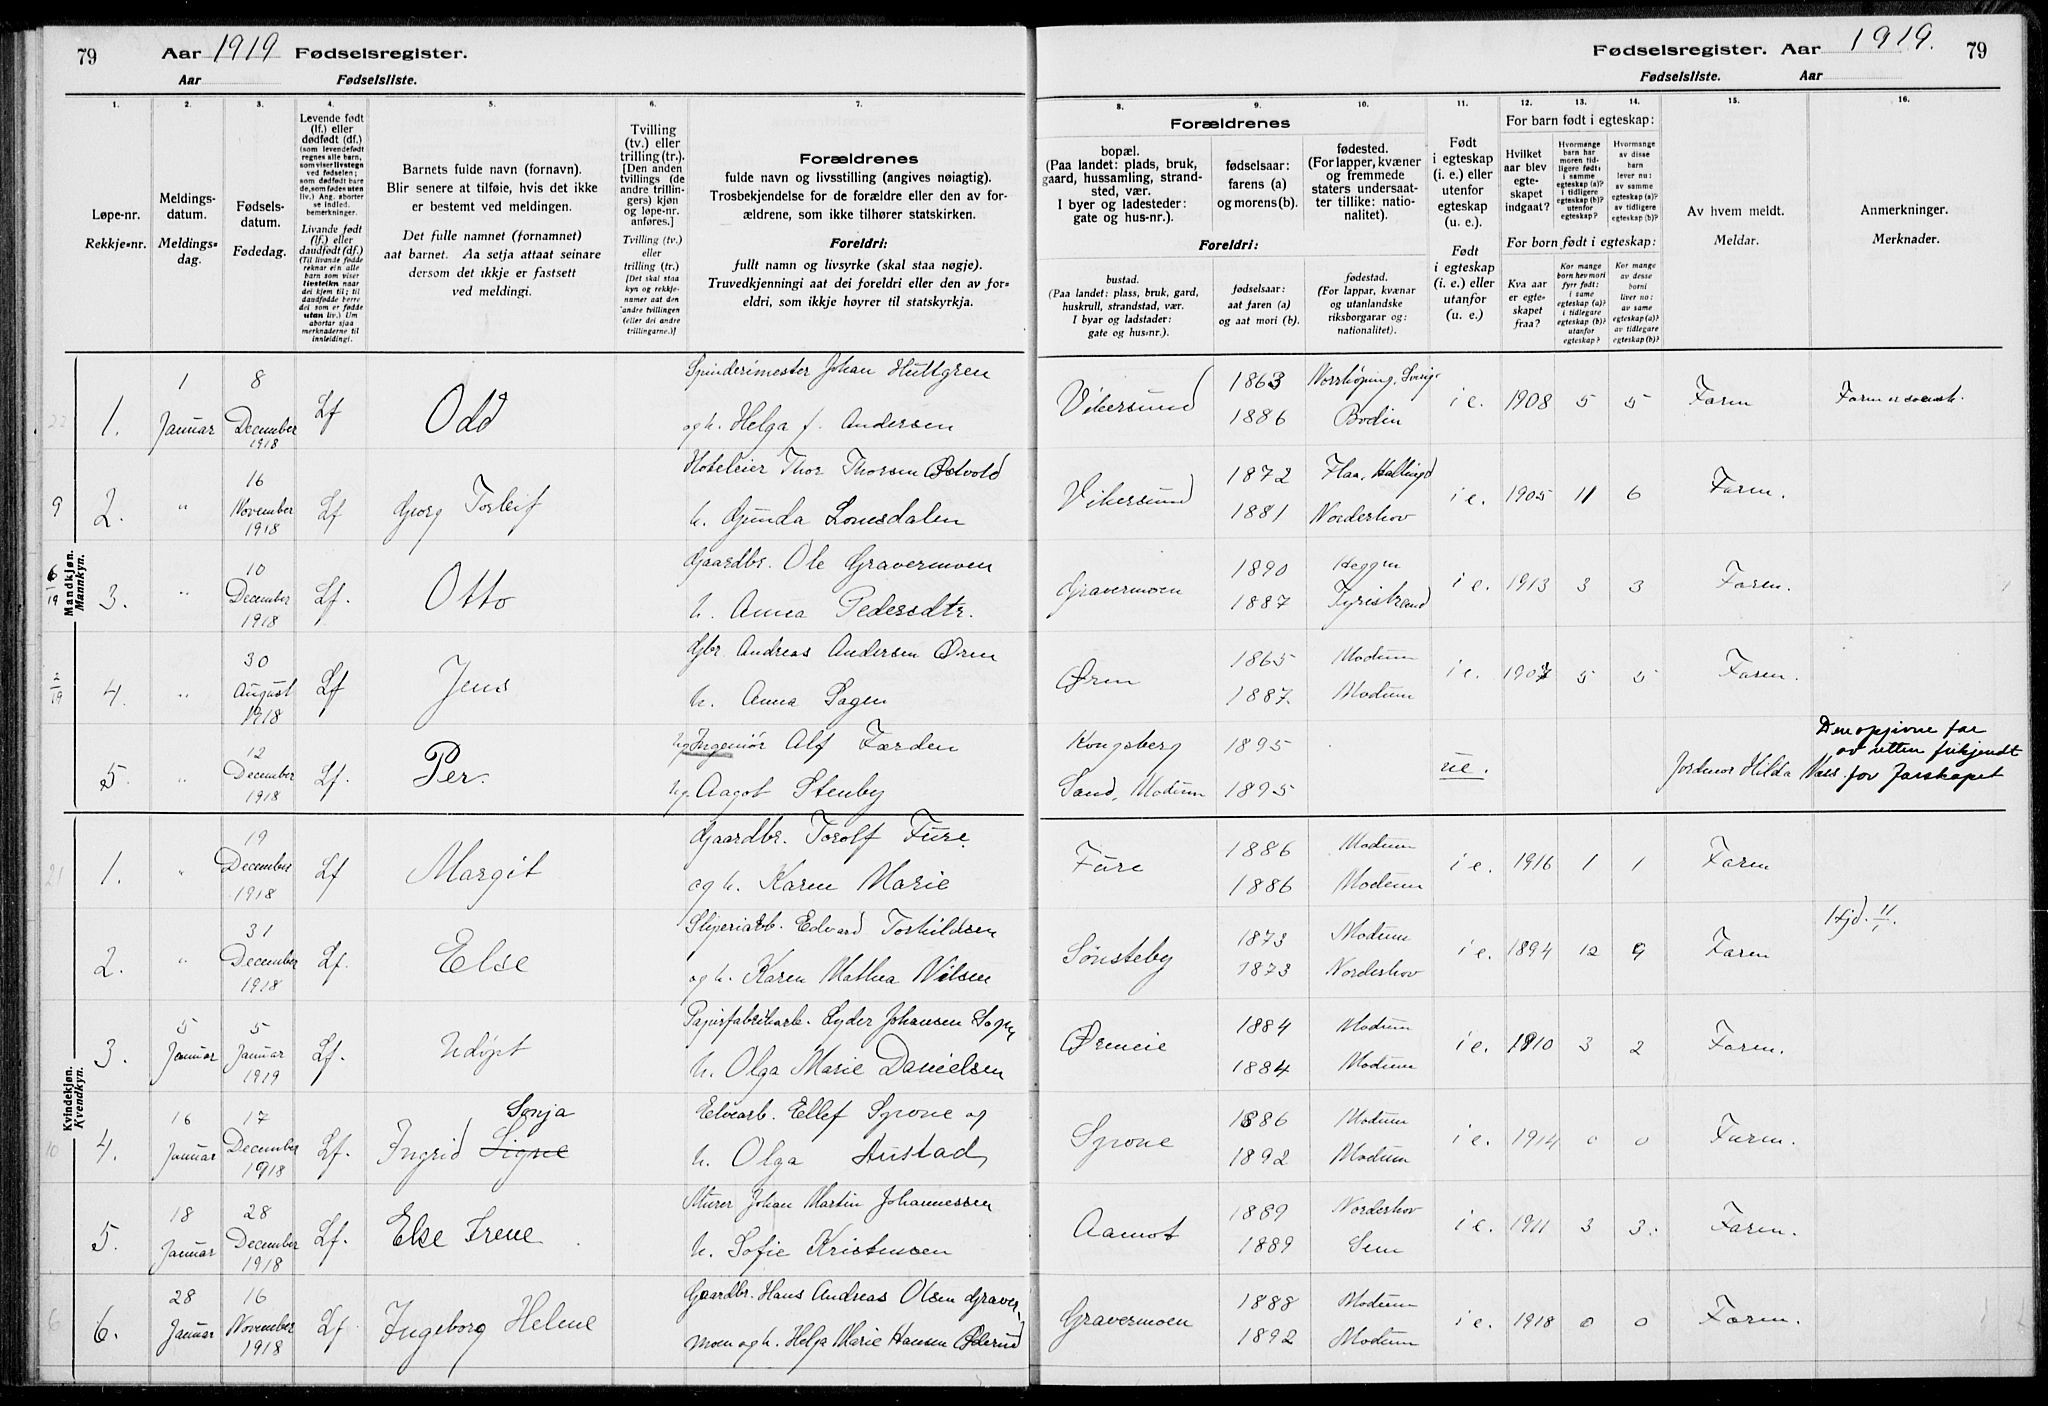 79 Aar 1919 Fødselsregister.
Aar Fødselsliste.
Fødselsregister. Aar 1919. 79
Fødselsliste. Aar
1. 2. 3. 4. 5. 6. 7.
Løpe-nr.
Rekkje-nr.
Meldings-
datum.
Meldings-
dag.
Fødsels-
datum.
Fødedag.
Levende født
(lf.) eller
dødfødt (df.)
(som levendefødt
regnes alle barn,
som viser livstegn
ved fødselen;
som dødfødt bare
de, som fødes uten
liv.) Ang. aborter
se indled.
bemerkninger.
Livande født
(lf.) eller
daudfødt (df.)
(Til livande fødde
reknar ein alle
barn som viser
livsteikn naar
dei kjem til; til
daudfødde berre
dei som er fødde
utan liv.) Um
abortar sjaa
merknaderne til
innleidingi.
Barnets fulde navn (fornavn).
Blir senere at tilføie, hvis det ikke
er bestemt ved meldingen.
Det fulle namnet (fornamnet)
aat barnet. Aa setja attaat seinare
dersom det ikkje er fastsett
ved meldingi.
Tvilling
(tv.) eller
trilling (tr.).
[Den anden
tvillings (de
andre trillin-
gers) kjøn
og løpe-nr.
anføres.]
Tvilling (tv.)
eller
trilling (tr.)
[Det skal staa
kyn og rekkje-
numer aat den
andre tvillingen
(eller dei andre
trillingarne.)]
Forældrenes
fulde navn og livsstilling (angives nøiagtig).
Trosbekjendelse for de forældre eller den av for-
ældrene, som ikke tilhører statskirken.
Foreldri:
fullt namn og livsyrke (skal staa nøgje).
Truvedkjenningi aat dei foreldri eller den av for-
eldri, som ikkje høyrer til statskyrkja.
8. 9. 10. 11. 12. 13. 14. 15. 16.
Forældrenes
bopæl.
(Paa landet: plads, bruk,
gaard, hussamling, strand-
sted, vær.
I byer og ladesteder:
gate og hus-nr.).
fødselsaar:
farens (a)
og morens (b).
fødested.
(For lapper, kvæner
og fremmede
staters undersaat-
ter tillike: natio-
nalitet).
Foreldri:
bustad.
(Paa landet: plass, bruk, gard,
huskrull, strandstad, vær.
I byar og ladstader:
gate og hus-nr.).
fødselsaar:
aat faren (a)
og aat mori (b).
fødestad.
(For lappar, kvænar
og utanlandske
riksborgarar og:
nationalitet).
Født
i egteskap
(i. e.) eller
utenfor
egteskap
(u. e.).
Født
i egteskap
(i. e.) eller
utanfor
(u. e.)
For barn født i egteskap:
Hvilket
aar blev
egte-
skapet
indgaat?
Hvormange
barn har
moren tid-
ligere født:
i samme
egteskap (a)?
i tidligere
egteskap (b)?
utenfor
egteskap?
Hvormange
av disse
barn
lever nu:
av samme
egteskap (a)?
av tidligere
egteskap (b)?
For born født i egteskap:
Kva aar
er egte-
skapet
fraa?
Kor mange
born hev mori
fyrr født:
i same
egteskap (a)?
i tidlegare
egteskap (b)?
utanfor
egteskap?
Kor mange
av desse
borni
liver no:
av same
egteskap (a)?
av tidlegare
egteskap (b)?
Av hvem meldt.
Meldar.
Anmerkninger.
Merknader.
Mandkjøn.
Mannkyn.
22 1. 1 Januar 8 December 1918 Lf Odd Spinderimester Johan Huttgren
og h. Helga f. Andersen
Vikersund 1863 Norrköping, Sverige 1886 Bodin i e. 1908 5 5 Faren Faren er svensk.
9 2. " 16 November 1918 Lf Georg Torleif Hoteleier Thor Thorsen Østvold
h. Gunda Lonsdalen
Vikersund 1872 Flaa, Hallingd 1881 Norderhov i e. 1905 11 6 Faren.
6/19 3. " 10 December 1918 Lf. Otto Gaardbr. Ole Gravermoen
h. Anna Pedersdtr.
Gravermoen 1890 Heggen 1887 Tyristrand i e. 1913 3 3 Faren.
2/19 4. " 30 August 1918 Lf Jens Gbr. Andreas Andersen Øren
h. Anna Sagen
Øren 1865 Modum 1887. Modum i e. 1907 5 5 Faren.
5. " 12 December 1918 Lf. Per. Ug. Ingeniør Alf Færden
Ug. Aagot Stenby
Kongsberg 1895
Sand, Modum 1895 ue. Jordmor Hilda Vaas.
Den opgivne far
av retten frikjendt
for farskapet
Kvindekjøn.
Kvendkyn.
21 1. " 19 December 1918 Lf Margit Gaardbr. Torolf Fure.
og h. Karen Marie
Fure 1886 Modum 1886 Modum i e. 1916 1 1 Faren
2. " 31 December 1918 Lf. Else Sliperiarb. Edvard Torkildsen
og h. Karen Mathea Nilsen
Sønsteby 1873 Modum 1873 Norderhov i e. 1894 12 9 Faren Hjd. 11/1.
3. 5 Januar 5 Januar 1919 Lf. Udøpt Papirfabrikarb. Lyder Johansen Sogn
h. Olga Marie Danielsen
Øreneie 1884 Modum 1884 Modum i e. 1910 3 2 Faren.
10 4. 16 Januar 17 December 1918 Lf. Ingrid Signe Sonja Elvearb. Ellef Syrone og
h. Olga Austad
Syrone 1886 Modum 1892 Modum i e. 1914 0 0 Faren.
5. 18 Januar 28 December 1918 Lf. Else Irene Murer Johan Martin Johannessen
h. Sofie Kristensen
Aamot 1889 Norderhov 1889 Sem i e. 1911 3 3. Faren.
6 6. 28 Januar 16 November 1918 Lf. Ingeborg Helene Gaardbr. Hans Andreas Olsen Graver-
moen og h. Helga Marie Hansen Øderud
Gravermoen 1888 Modum 1892 Modum i e. 1918 0 0 Faren.